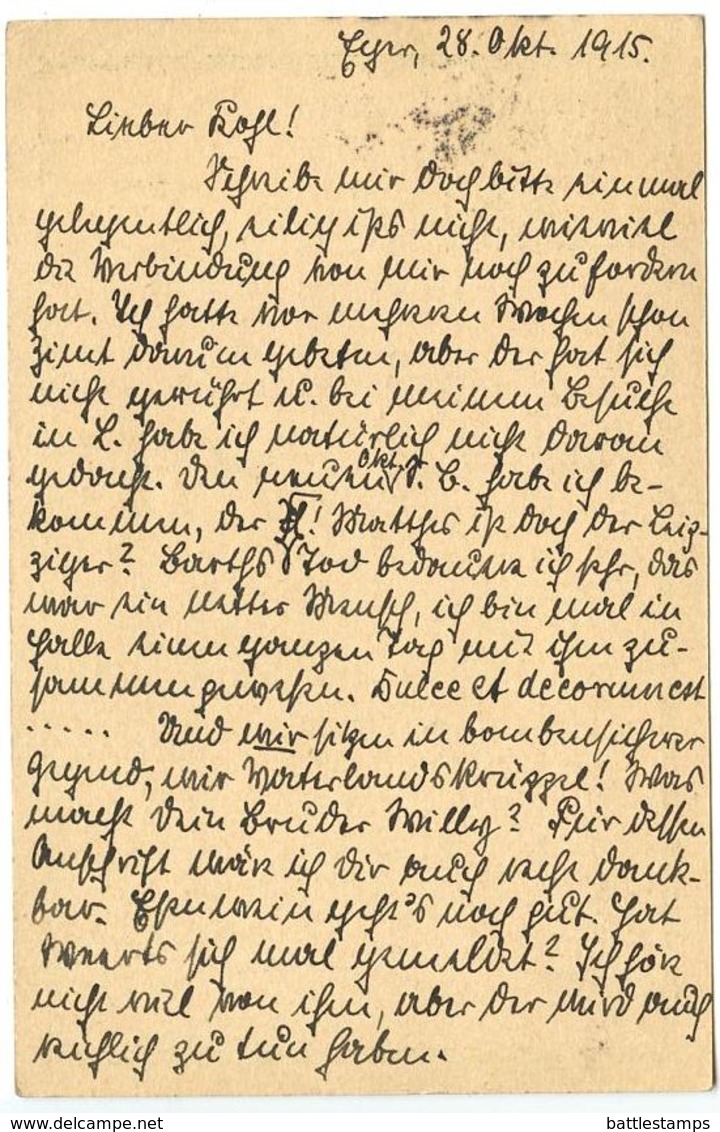 Eger, 28. Okt. 1915.
Lieber Kohl!
Schreibe mir doch bitte einmal
gelegentlich, eilig ists nicht, wieviel
die Verbindung von mir noch zu fordern
hat. Ich hatte vor mehreren Wochen schon
Zimt darum gebeten, aber der hat sich
nicht gerührt u. bei meinem Besuche
in L. habe ich natürlich nicht daran
gedacht. Den neuen Okt. S. B. habe ich be-
kommen, der XI! Matthes ist doch der Leip-
ziger? Barths Tod bedauere ich sehr, das
war ein netter Mensch, ich bin mal in
Halle einen ganzen Tag mit ihm zu-
sammengewesen. Dulce et decorum est
..... Und wir sitzen in bombensicherer
Gegend, wir Vaterlandskrüppel! Was
macht Dein Bruder Willy? Für dessen
Anschrift wäre ich Dir auch recht dank-
bar. geht's noch gut. Hat
Weerts sich mal gemeldet? Ich höre
nicht viel von ihm, aber der wird auch
reichlich zu tun haben.
battlestamps